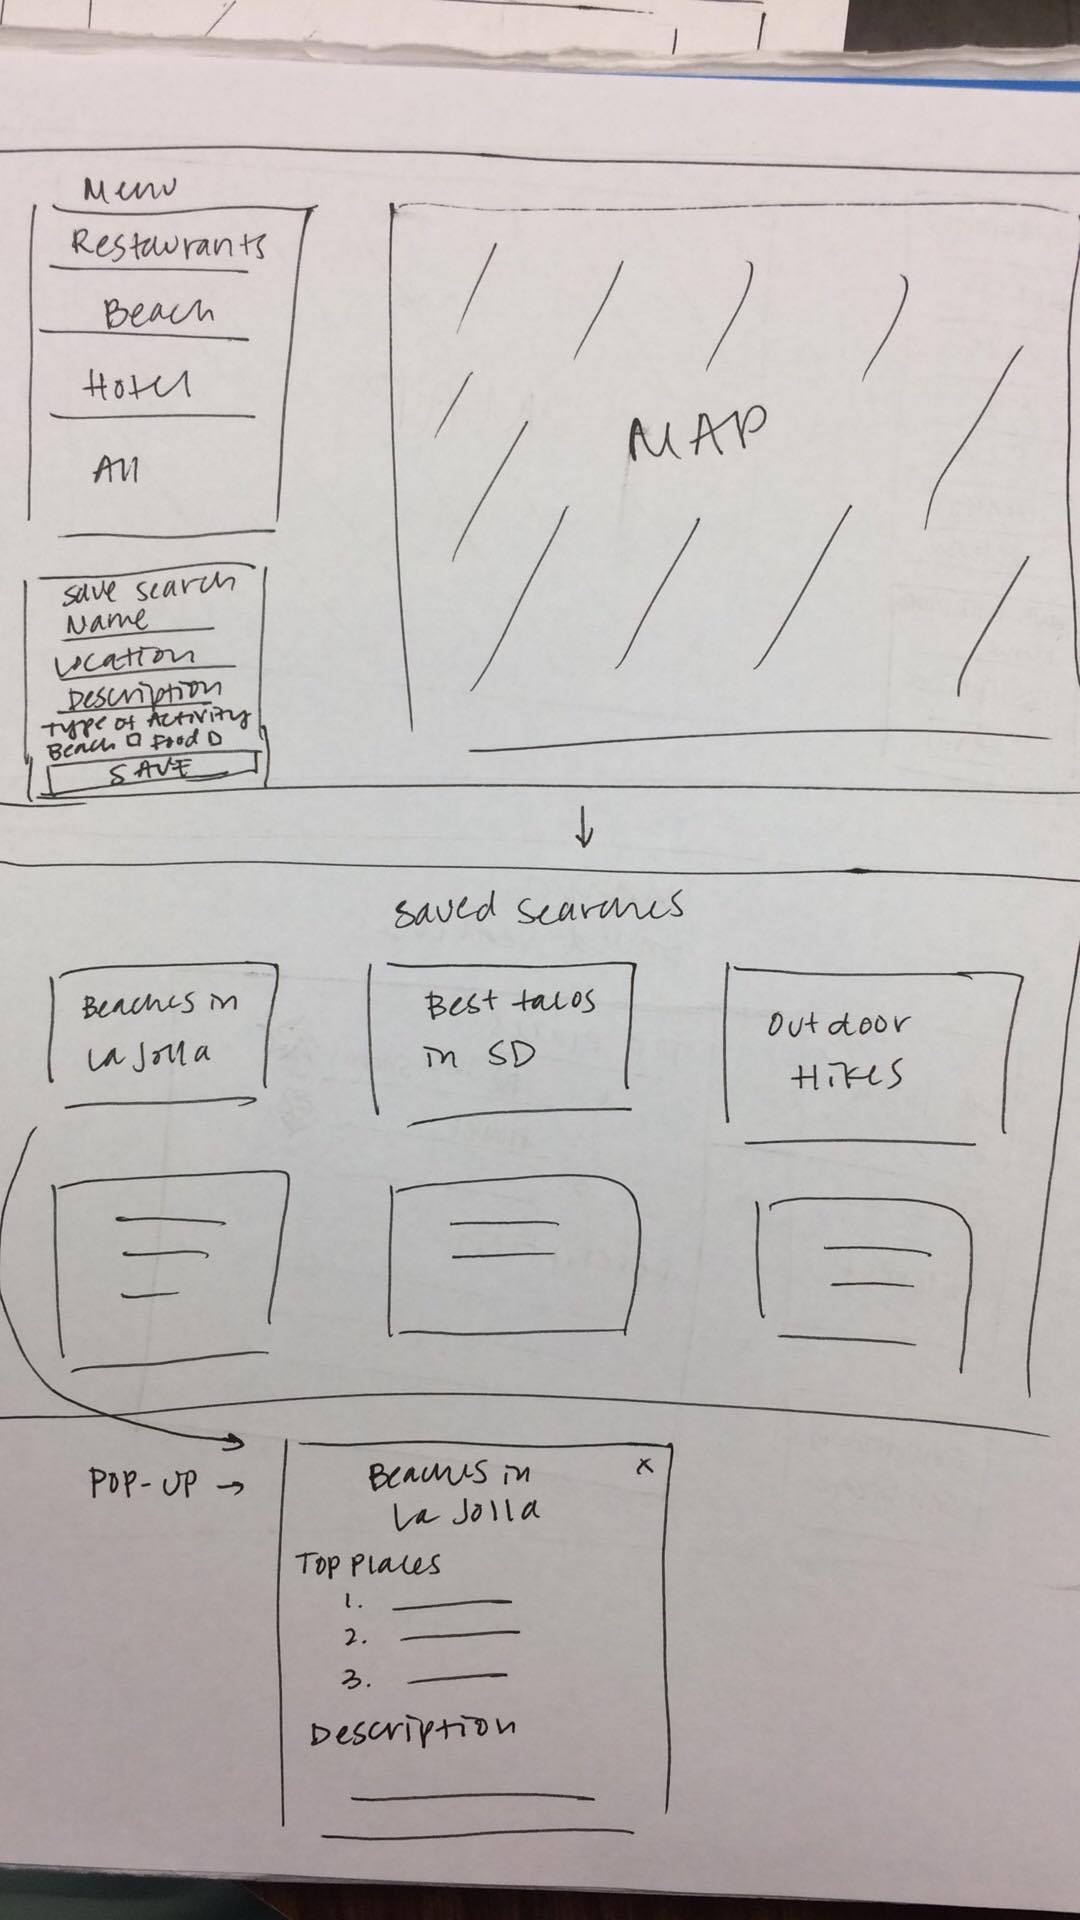 Menu
Restaurants
Beach
Hotel
All
MAP
save search
Name
Location
Description
Type of Activity
Beach □ Food □
SAVE
↓
saved searches
Beaches in
La Jolla
Best tacos
in SD
Outdoor
Hikes
POP-UP →
Beaches in
La Jolla
x
Top Places
1.
2.
3.
Description